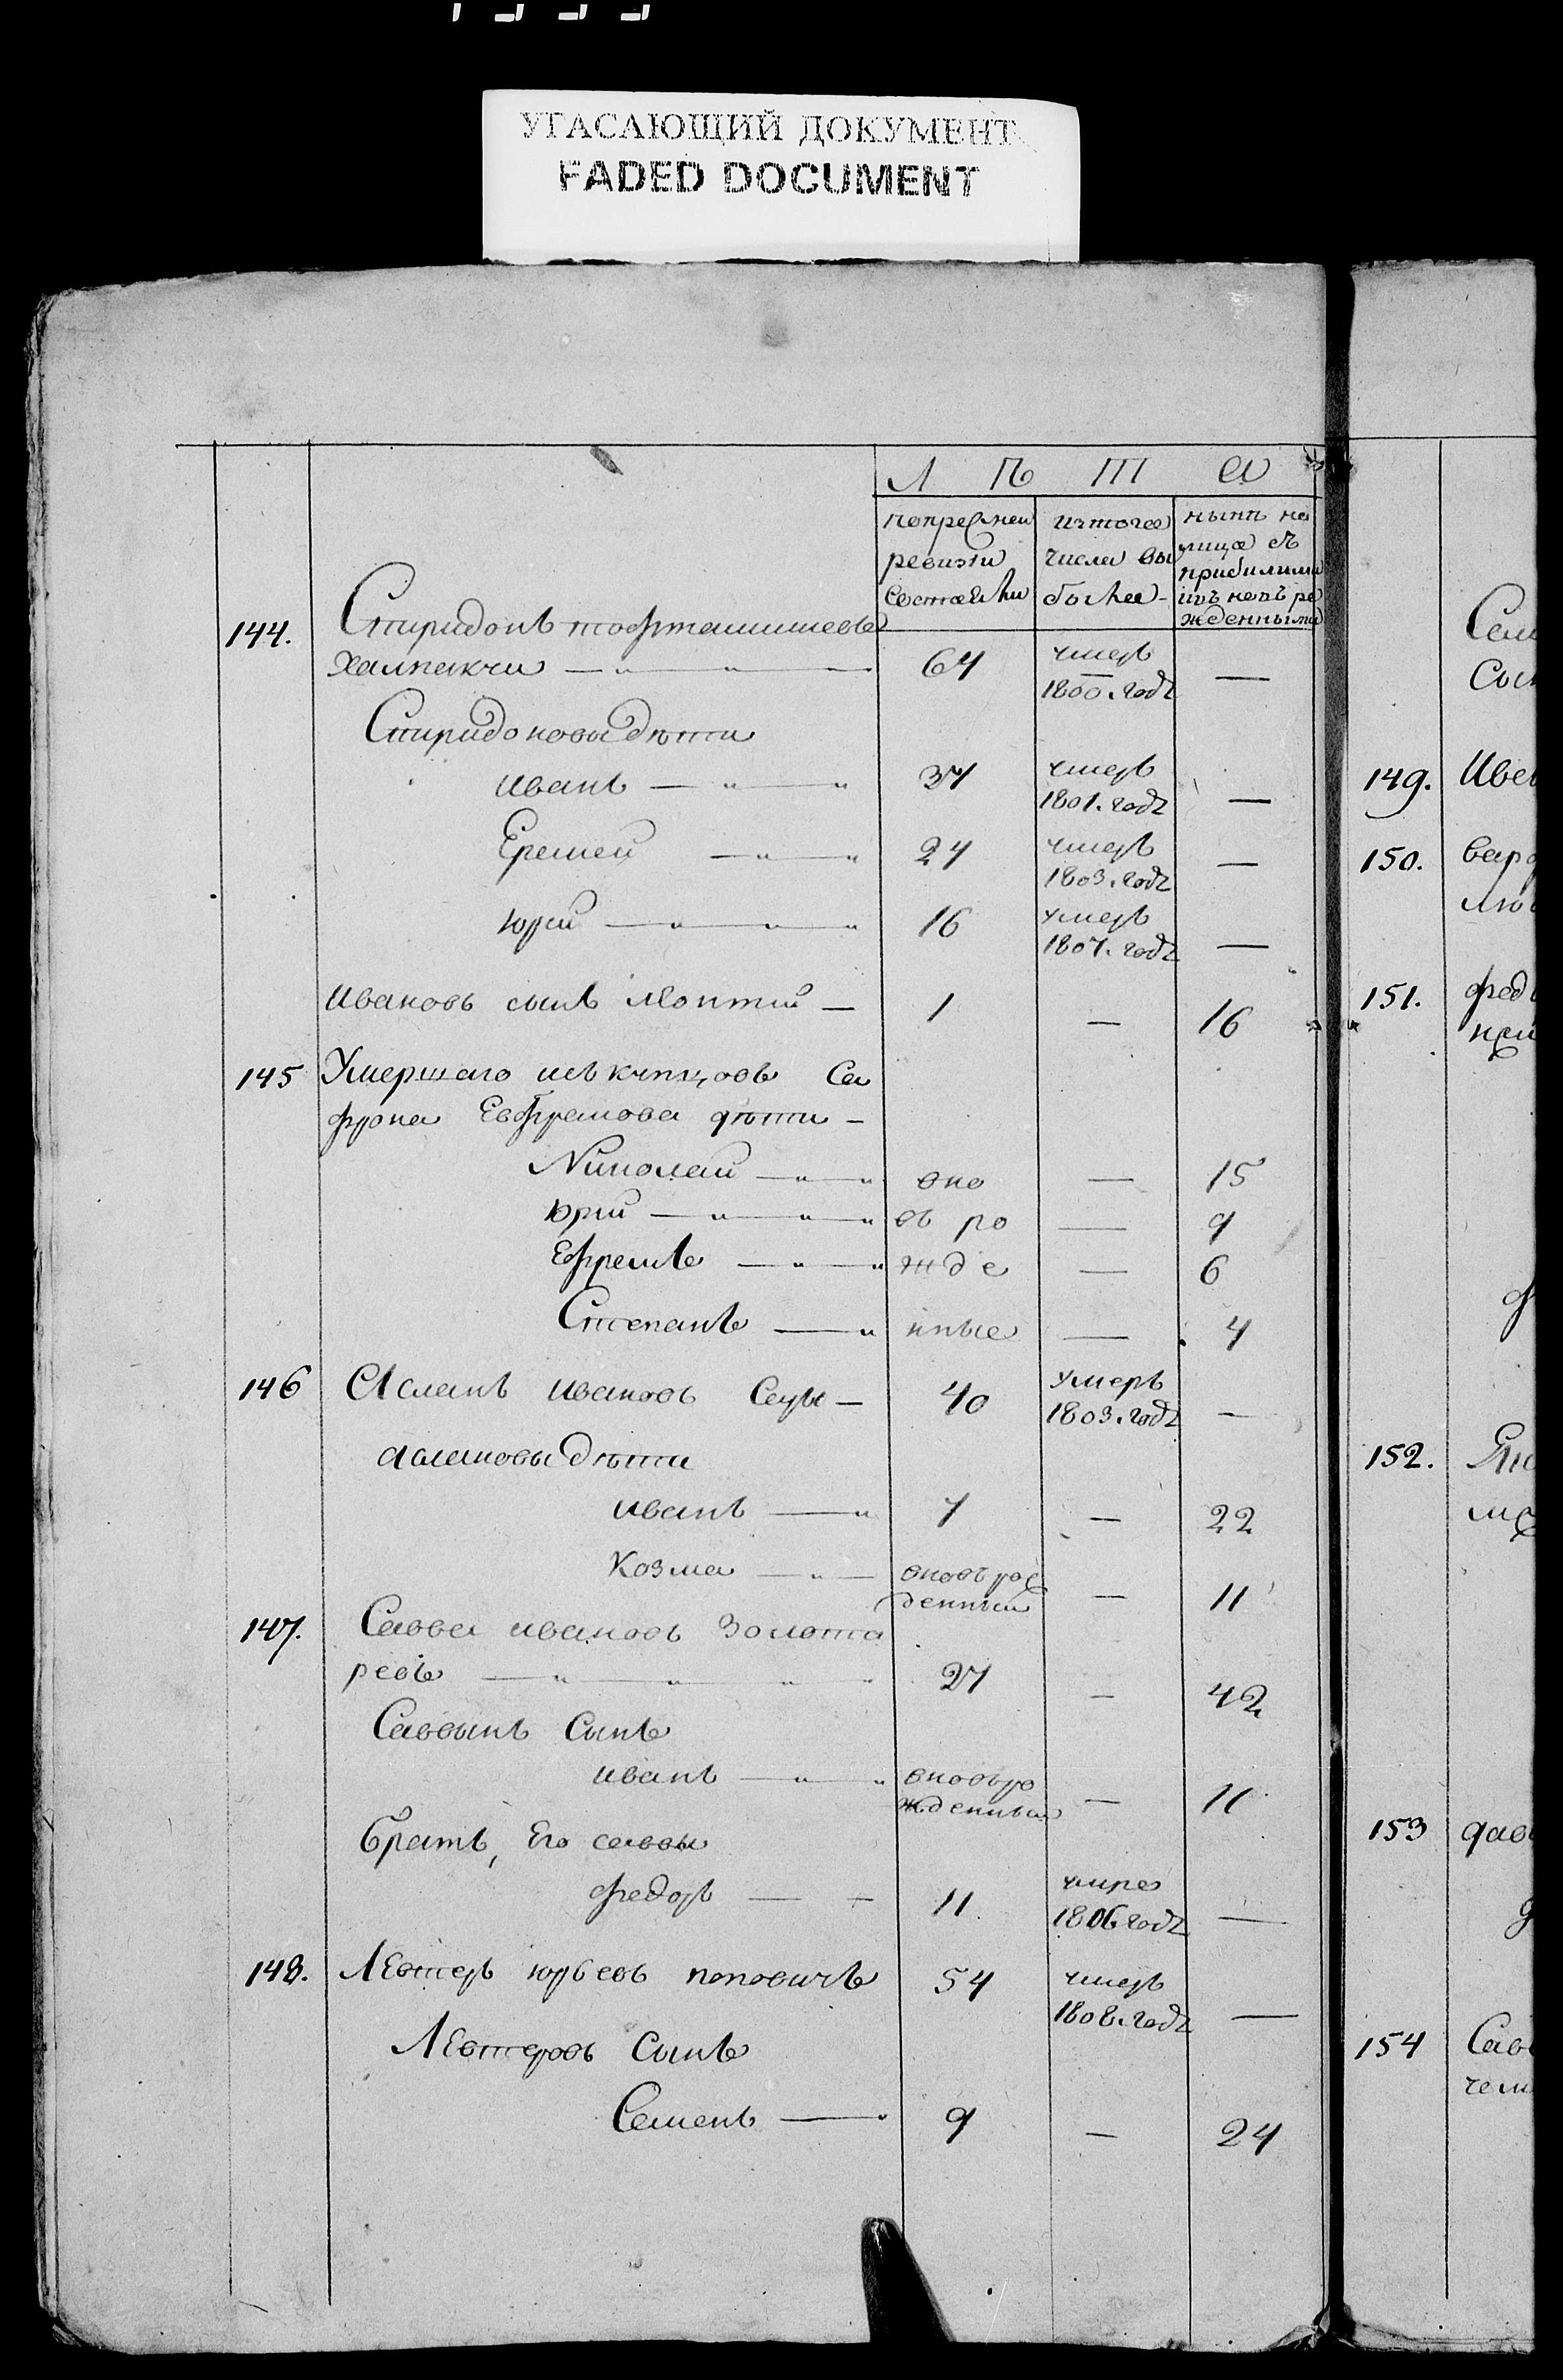 УГАСАЮЩИЙ ДОКУМЕНТ
FADED DOCUMENT
Л Ѣ Т А
попрежней ревизіи состояли
изтого числа выбыло
нынѣ на лицо съ прибылыми ивновь рожденными
144. Спиридонъ
халпакчи — 64 умеръ 1800. года —
Спиридоновы дѣти
иванъ — 37 умеръ 1801. года —
Еремей — 24 умеръ 1803. года —
юрій — 16 умеръ 1807. года —
ивановъ сынъ леонтій — 1 — 16
145 Умершаго изъ купцовъ Са
фрона Евфремова дѣти —
Николай — вно — 15
юрій — въ ро — 9
Ефремъ — жде — 6
Степанъ — нные — 4
146 Асланъ ивановъ — 40 умеръ 1803. года —
аслановы дѣти
иванъ — 7 — 22
козма — вновь рож
денный — 11
147. Савва ивановъ Золота
ревъ — 27 — 42
Саввинъ сынъ
иванъ — вновь ро
жденный — 11
братъ, Его саввы
федоръ — 11 умре 1806 года —
148. Левтеръ юрьевъ поповичъ 54 умеръ 1808. года —
Левтеровъ сынъ
Семенъ — 9 — 24
149. Иве
150.
151. Федо
152.
153 дав
154 Сав